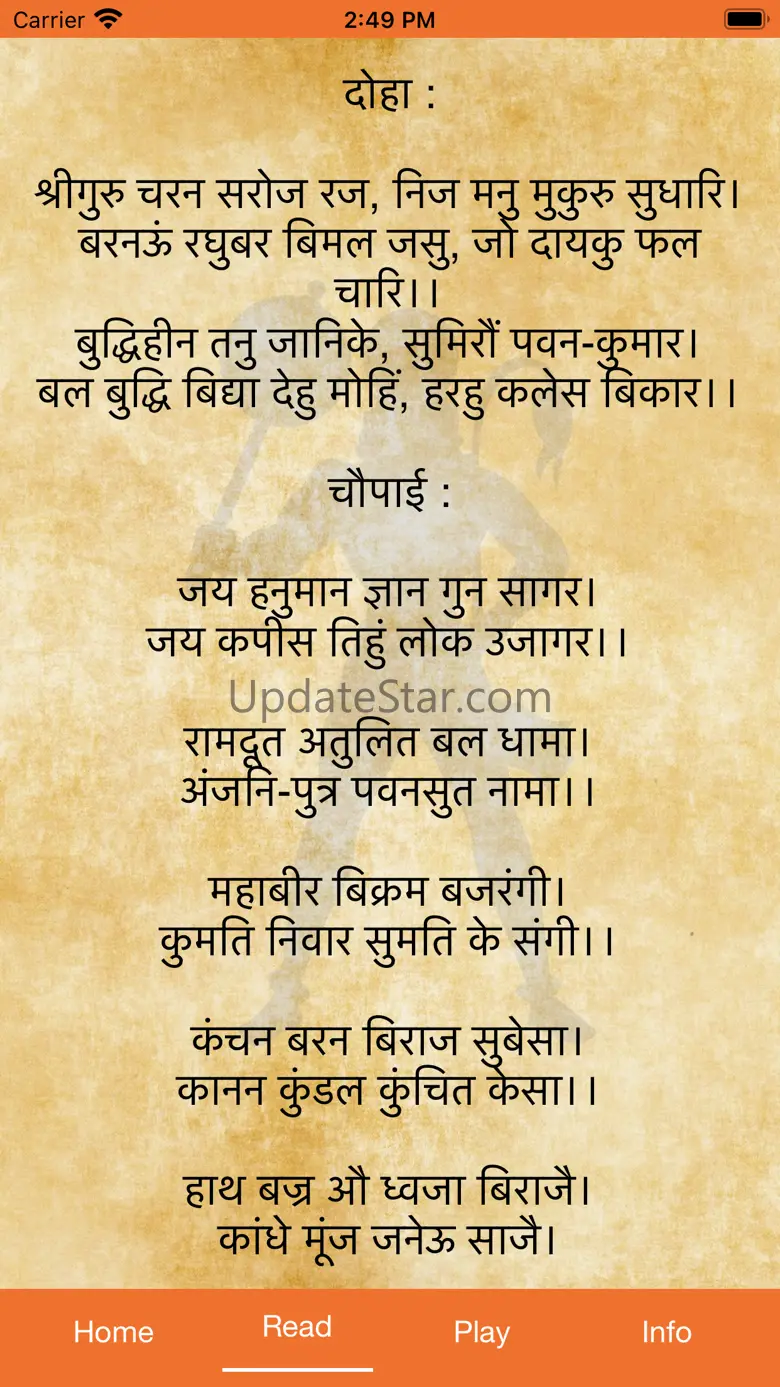 Carrier 2:49 PM
दोहा :
श्रीगुरु चरन सरोज रज, निज मनु मुकुरु सुधारि।
बरनऊं रघुबर बिमल जसु, जो दायकु फल
चारि।।
बुद्धिहीन तनु जानिके, सुमिरौं पवन-कुमार।
बल बुद्धि बिद्या देहु मोहिं, हरहु कलेस बिकार।।
चौपाई :
जय हनुमान ज्ञान गुन सागर।
जय कपीस तिहुं लोक उजागर।।
UpdateStar.com
रामदूत अतुलित बल धामा।
अंजनि-पुत्र पवनसुत नामा।।
महाबीर बिक्रम बजरंगी।
कुमति निवार सुमति के संगी।।
कंचन बरन बिराज सुबेसा।
कानन कुंडल कुंचित केसा।।
हाथ बज्र औ ध्वजा बिराजै।
कांधे मूंज जनेऊ साजै।
Home Read Play Info